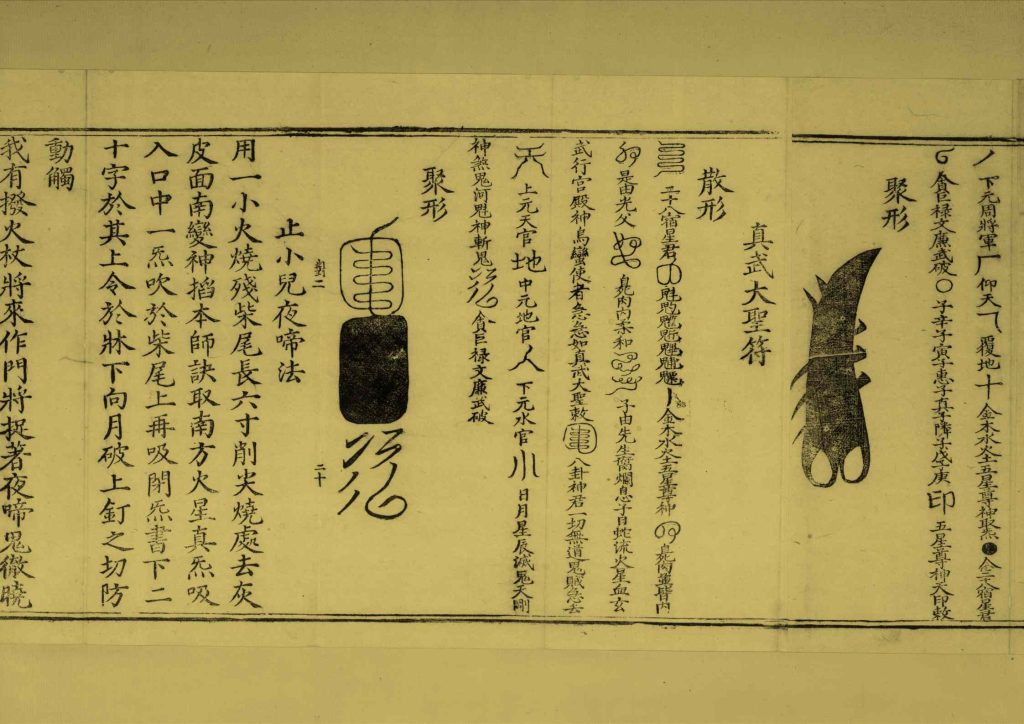 下元周將軍 仰天 覆地 十 金木水火土五星尊神聚炁 二十八宿星君
貪巨禄文廉武破 子辛子寅子惠子真 子戌子庚 印 五星尊神天印敕
聚形
真武大聖符
散形
二十八宿星君 金木水火土五星尊神
是由光父 子由先生 息子白蛇流火星血玄
武行宮殿神烏 使者急急如真武大聖敕 八卦神君一切無道鬼賊急去
上元天官地中元地官人下元水官 日月星辰滅鬼天剛
神煞鬼河魁神斬鬼 貪巨禄文廉武破
聚形
二十
止小兒夜啼法
用一小火燒殘柴尾長六寸削尖燒處去灰
皮面南變神掐本師訣取南方火星真炁吸
入口中一炁吹於柴尾上再吸閉炁書下二
十字於其上令於牀下向月破上釘之切防
動觸
我有撥火杖將來作門將捉著夜啼鬼徹曉